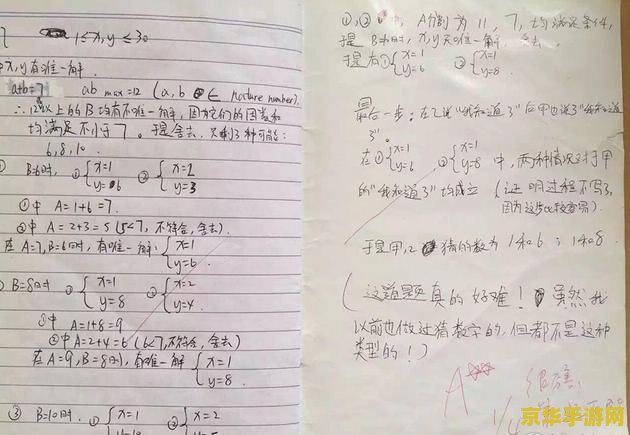 1≤x,y≤30
x,y有唯一解.
a+b=7 ab max=12 (a,b∈ nature number).
∴12以上的B均有不唯一解，因为它们的因数和
均满足不小于7。于是舍去，只剩3种可能：
6,8,10.
① B=6时, ①{x=1 y=6 ②{x=2 y=3
①中 A=1+6=7.
②中 A=2+3=5 (5<7, 不符合, 舍去).
在A=7,B=6时, 有唯一解: {x=1 y=6.
② B=8时 ①{x=1 y=8 ②{x=2 y=4.
①中 A=1+8=9
②中 A=2+4=6 (6<7,不符合,舍去)
在A=9,B=8时, 有唯一解 {x=1 y=8.
③ B=10时. ①{x=1 ②{x=2
A分别为11, 7, 均满足条件,
于是 B=10时, x,y无唯一解, 舍去.
于是有①{x=1 y=6 ②{x=1 y=8.
最后一步：在乙说“我知道了”后甲也说了“我知道
了”.
在①{x=1 y=6, ②{x=1 y=8 中, 两种情况对于甲
的“我知道了”均成立 (证明过程不写了,
因为这步比较容易).
于是甲,乙猜的数为 1和6; 1和8.
(这道题真的好难！虽然我
以前也做过猜数字的,但都不是这种
类型的！)
A
京华手游网